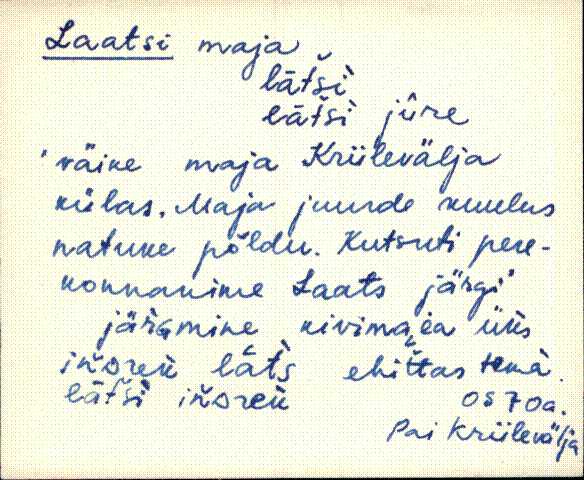 Laatsi maja
lātši
lātši jūre
"väike maja Kriilevälja
külas. Maja juurde kuulus
natuke põldu. Kutsuti pere-
konnanime Laats järgi"
järgmine kivimaja üks
iñsreń lāts ehittas temä
lātši iñsreń
OS 70a.
Pai Kriilevälja